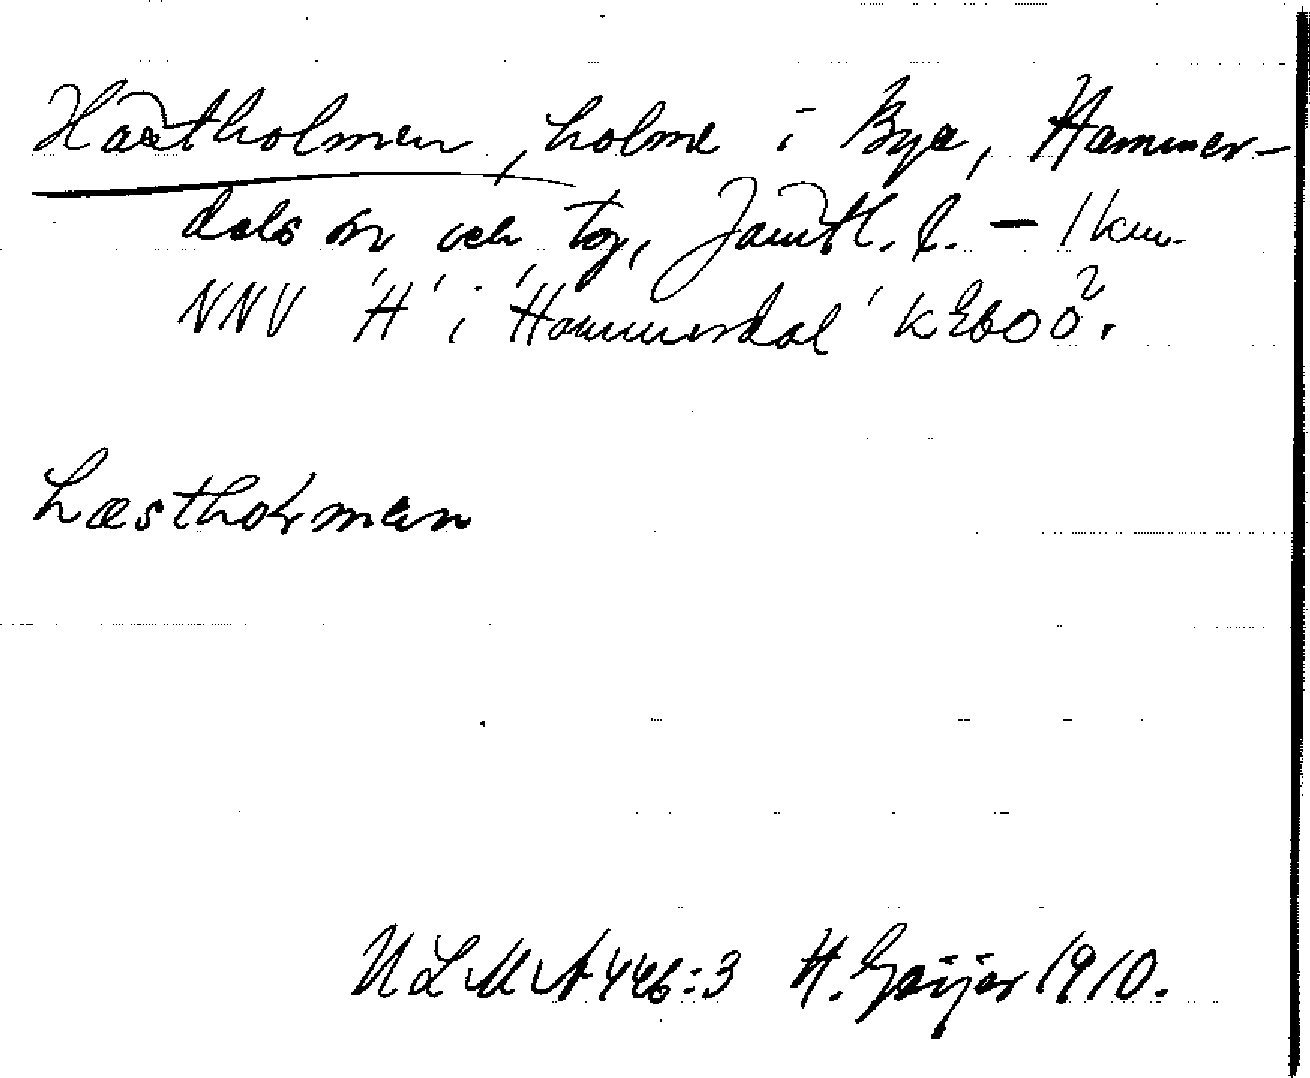 Hästholmen, holme i Bye, Hammer-
dals sn och tg, Jämtl. l. – 1 km.
NNV 'H' i 'Hammerdal' k
hæsthoɫmen
ULMA 446:3 H. Geijer 1910.